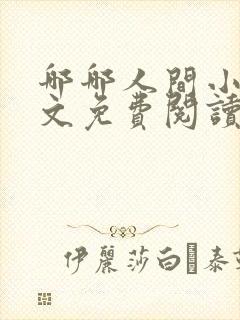 哪哪人間小
文免費閱讀
伊麗莎白�泰